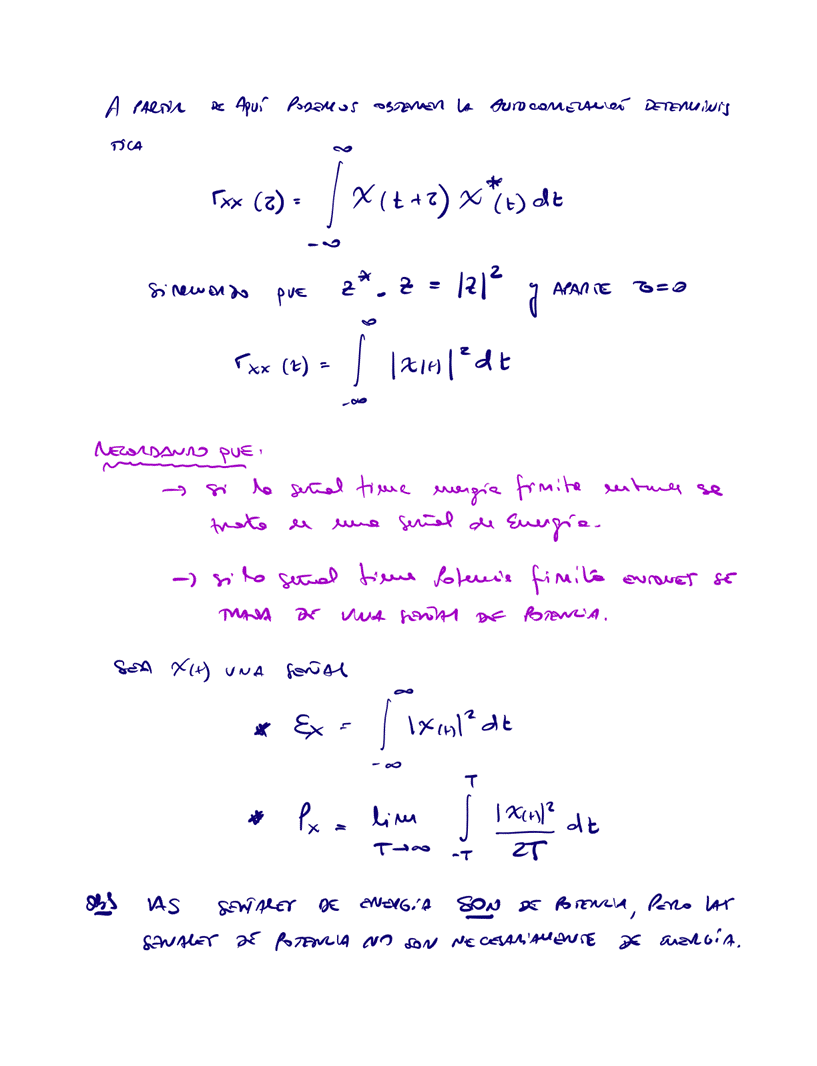 A PARTIR DE AQUÍ PODEMOS OBTENER LA AUTOCORRELACIÓN DETERMINIS
TICA
r_xx (τ) = ∫_{-∞}^{∞} x(t+τ) x^*(t) dt
SI RECUERDO QUE z^* . z = |z|^2 y APARTE τ=0
r_xx (t) = ∫_{-∞}^{∞} |x(t)|^2 dt
RECORDANDO QUE:
→ si la señal tiene energía finita entonces se
trata de una señal de Energía.
→ si la señal tiene Potencia finita ENTONCES SE
TRATA DE UNA SEÑAL DE POTENCIA.
SEA x(t) UNA SEÑAL
* Ex = ∫_{-∞}^{∞} |x(t)|^2 dt
* Px = lim_{T→∞} ∫_{-T}^{T} |x(t)|^2 / 2T dt
Obs LAS SEÑALES DE ENERGÍA SON DE POTENCIA, PERO LAS
SEÑALES DE POTENCIA NO SON NECESARIAMENTE DE ENERGÍA.